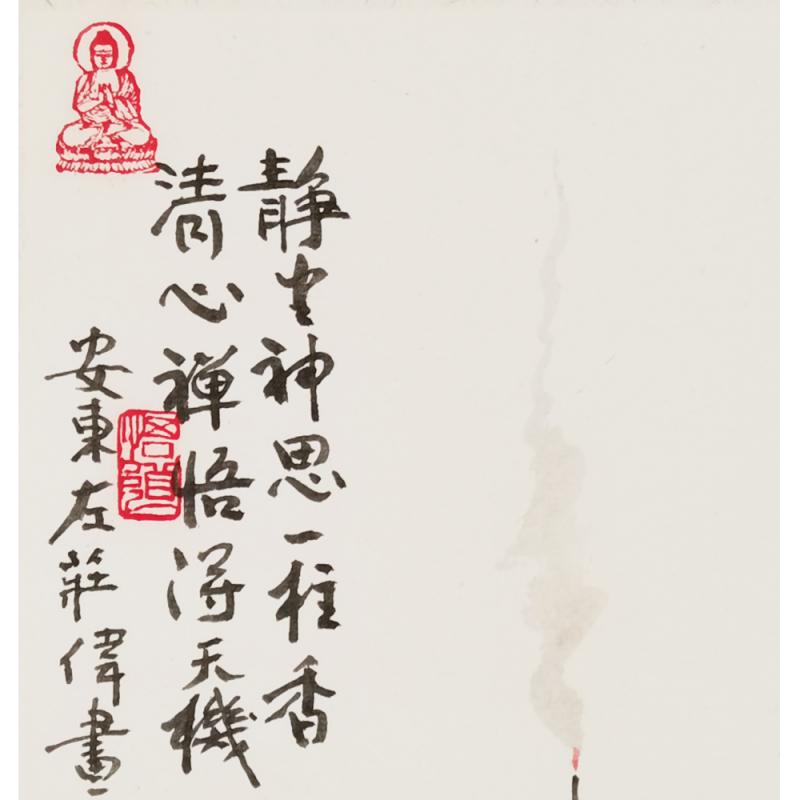 静坐神思一柱香
清心禅悟得天機
安東左莊偉畫
悟道